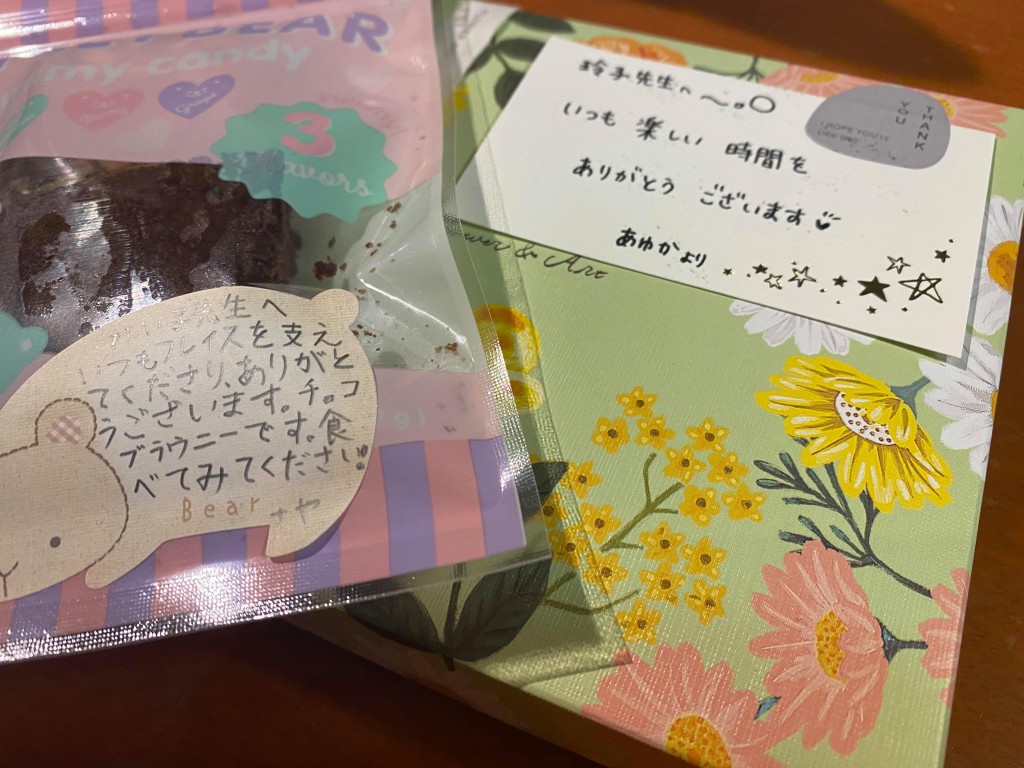 BEAR
my candy
3
flavors
玲子先生へ
いつも 楽しい 時間を
ありがとう ございます
あゆかより
THANK
YOU
I HOPE YOU'LL
& Art
先生へ
いつもフレイズを支え
てくださり、ありがと
うございます。チョコ
ブラウニーです。食
べてみてください。
Bear